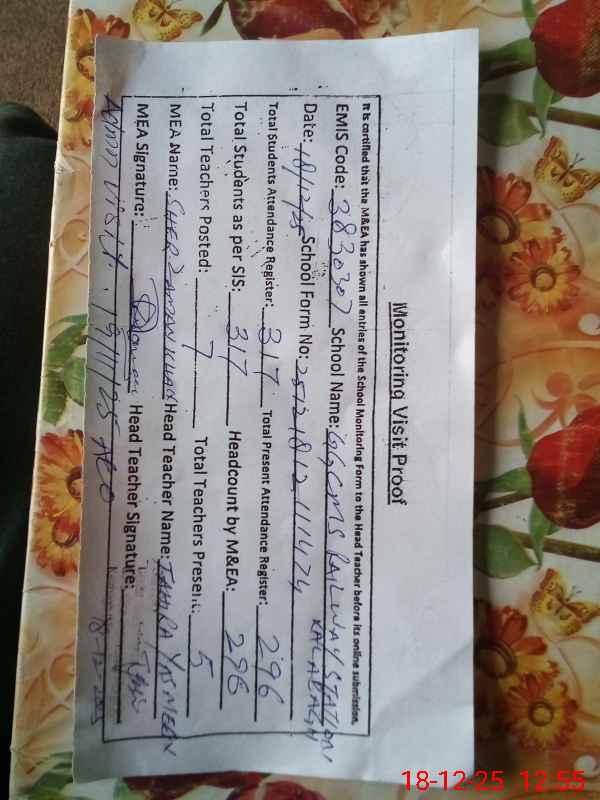 Monitoring Visit Proof
It is certified that the M&EA has shown all entries of the School Monitoring Form to the Head Teacher before its online submission.
EMIS Code: 3830307 School Name: GGCMS RAILWAY STATION
KALABAGH
Date: 18/12/25 School Form No: 251218121111474
Total Students Attendance Register: 317 Total Present Attendance Register: 296
Total Students as per SIS: 317 Headcount by M&EA: 296
Total Teachers Posted: 7 Total Teachers Present: 5
MEA Name: SHER ZAMAN KHAN Head Teacher Name: TAHIRA YASMEEN
MEA Signature: Head Teacher Signature:
Admn Visit. 19/11/25 AEO
18-12-2025
18-12-25 12:55